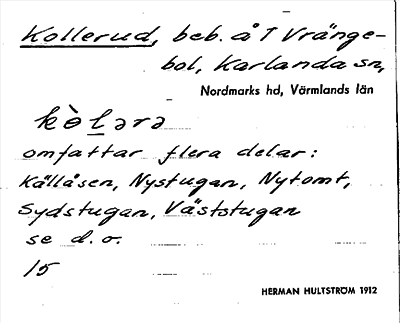 Kollerud, beb. å T Vränge-
bol, Karlanda sn,
Nordmarks hd, Värmlands län
kòḻərə
omfattar flera delar:
Källåsen, Nystugan, Nytomt,
Sydstugan, Väststugan
se d. o.
15
HERMAN HULTSTRÖM 1912